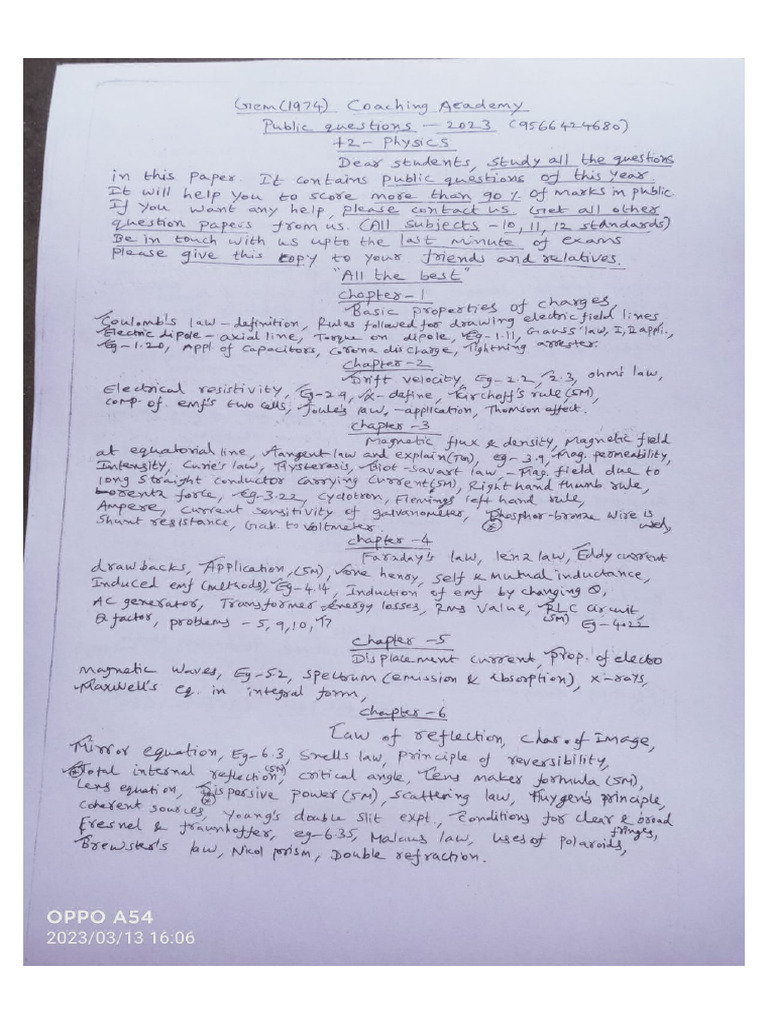 Gem (1974) Coaching Academy
Public questions - 2023 (9566424680)
+2 - Physics
Dear students, study all the questions
in this paper. It contains public questions of this year.
It will help you to score more than 90 % of marks in public
If you want any help, please contact us. Get all other
question papers from us. (All subjects - 10, 11, 12 standards)
Be in touch with us upto the last minute of exams
Please give this copy to your friends and relatives.
"All the best"
Chapter - 1
Basic properties of charges,
Coulomb's law - definition, Rules followed for drawing electric field lines
Electric dipole - axial line, Torque on dipole, Eg-1.11, Gauss' law, I, II appli.,
Eg-1.20, Appl of capacitors, Corona discharge, Lightning arrester.
Chapter - 2
Drift velocity, Eg-2.2, 2.3, ohm's law,
Electrical resistivity, Eg-2.9, α - define, Kirchoff's rule (5M),
comp. of emf's two cells, Joule's law, - application, Thomson effect.
Chapter - 3
Magnetic flux & density, Magnetic field
at equatorial line, Tangent law and explain (7M), eg-3.9, Mag. permeability,
Intensity, Curie's law, Hysteresis, Biot-Savart law - Mag. field due to
long straight conductor carrying current (5M), Right hand thumb rule,
Lorentz force, Eg-3.22, Cyclotron, Flemings left hand rule,
Ampere, Current sensitivity of galvanometer, Phosphor-bronze wire is used,
Shunt resistance, Gal. to voltmeter.
Chapter - 4
Faraday's law, lenz law, Eddy current
drawbacks, Application, (5M), one henry, self & mutual inductance,
Induced emf (methods), Eg-4.14, Induction of emf by changing θ,
AC generator, Transformer - energy losses, Rms value, RLC circuit, (5M)
Q factor, problems - 5, 9, 10, 17 Eg-4.22
Chapter - 5
Displacement current, Prop. of electro
Magnetic waves, Eg-5.2, spectrum (emission & absorption), x-rays,
Maxwell's eq. in integral form,
Chapter - 6
Law of reflection, Char. of Image,
Mirror equation, Eg-6.3, Snells law, Principle of reversibility,
Total internal reflection (5M), critical angle, Lens maker formula (5M),
Lens equation, Disporsive power (5M), Scattering law, Huygen's principle,
Coherent sources, Young's double slit expt., Conditions for clear & broad fringes,
Fresnel & fraunhoffer, eg-6.35, Malaus law, uses of polaroids,
Brewster's law, Nicol prism, Double refraction.
OPPO A54
2023/03/13 16:06